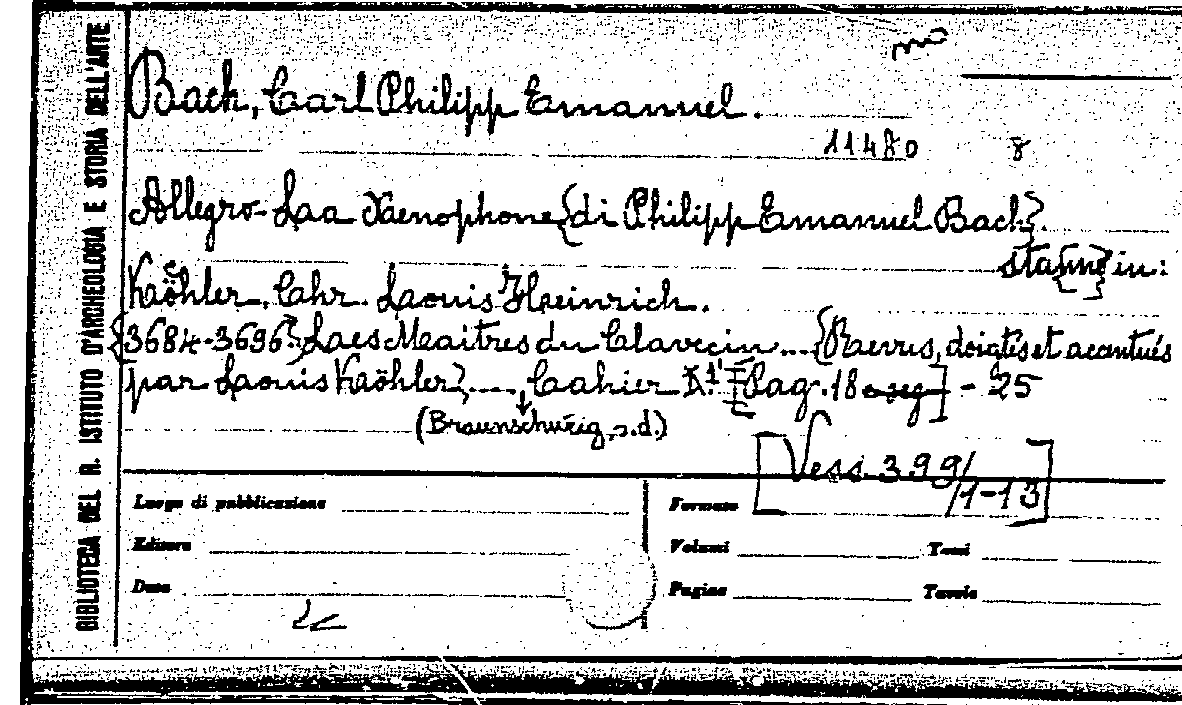 BIBLIOTECA DEL R. ISTITUTO D'ARCHEOLOGIA E STORIA DELL'ARTE
Bach, Carl Philipp Emanuel.
11480 8
Allegro- Laa Xaenophone {di Philipp Emanuel Bach}.
sta[mp] in:
Kaöhler, Chr. Laouis Haeinrich.
{3684-3696} Laes Maaitres du Clavecin.... {Raevus, doigtés et acantués
par Laouis Kaöhler}.... Cahier X.1 [Pag. 18 e seg] - 25
(Braunschweig, s.d.)
[Vess 399/
/1-13]
Luogo di pubblicazione
Formato
Editore
Volumi Tomi
Data
Pagine Tavole